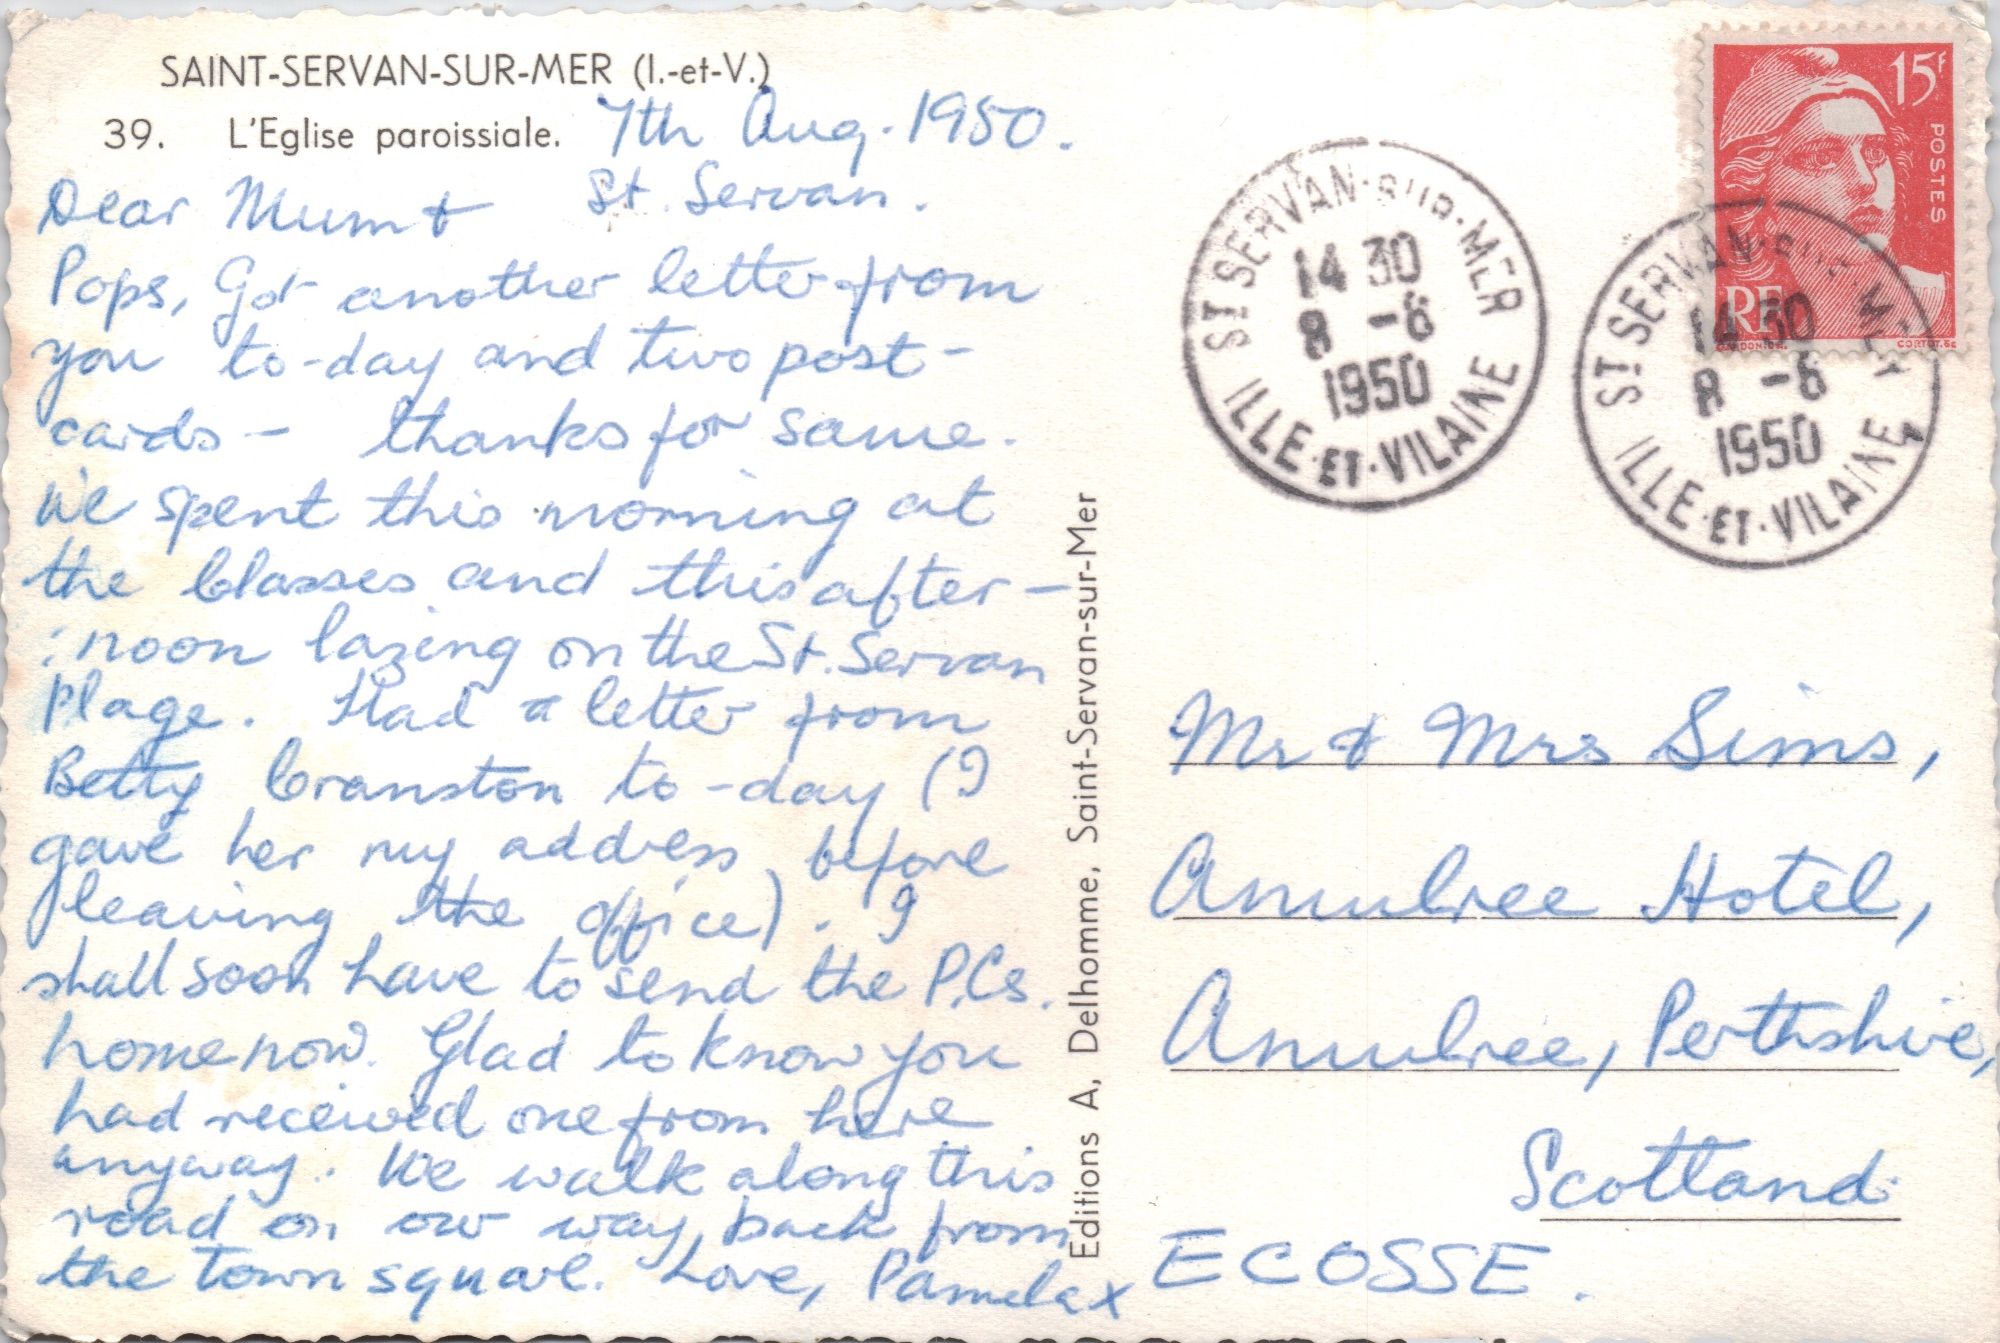 SAINT-SERVAN-SUR-MER (I.-et-V.)
39. L'Eglise paroissiale.
7th Aug. 1950.
St. Servan.
Dear Mum &
Pops, Got another letter from
you to-day and two post-
cards - thanks for same.
We spent this morning at
the Classes and this after-
:noon lazing on the St. Servan
Plage. Had a letter from
Betty Cranston to-day (I
gave her my address before
leaving the office). I
shall soon have to send the P.Cs.
home now. Glad to know you
had received one from here
anyway. We walk along this
road on our way back from
the town square. Love, Pamela x
Editions A, Delhomme, Saint-Servan-sur-Mer
ST SERVAN-SUR-MER
14 30
8 -8
1950
ILLE-ET-VILAINE
15F
POSTES
RF
GANDON DEL.
CORTOT.SC
ST SERVAN-SUR-MER
14 30
8 -8
1950
ILLE-ET-VILAINE
Mr & Mrs Sims,
Amulree Hotel,
Amulree, Perthshire,
Scotland.
ECOSSE.